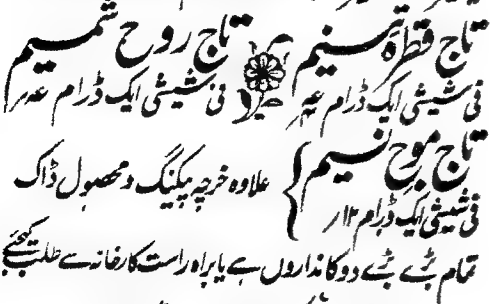 تاج قطرۂ تسنیم
فی شیشی ایک ڈرام
تاج روح شمیم
فی شیشی ایک ڈرام
تاج موج نسیم
فی شیشی ایک ڈرام ۱۲؍
علاوہ خرچہ پیکنگ و محصول ڈاک
تمام بڑے بڑے دوکانداروں سے یا براہ راست کارخانہ سے طلب کیجئے